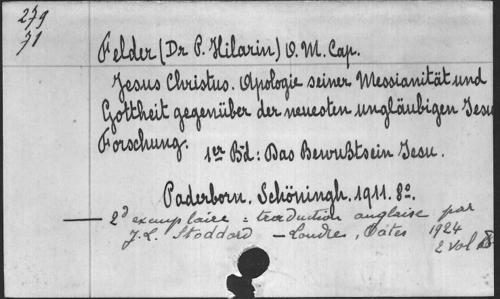 279
71
Felder (Dr P. Hilarin) O. M. Cap.
Jesus Christus. Apologie seiner Messianität und
Gottheit gegenüber der neuesten ungläubigen Jesu
Forschung.
1er Bd: Das Bewußtsein Jesu.
Paderborn. Schöningh. 1911. 8o.
— 2d exemplaire = traduction anglaise par
J. L. Stoddard — Londres, Oates 1924
2 vol 8o